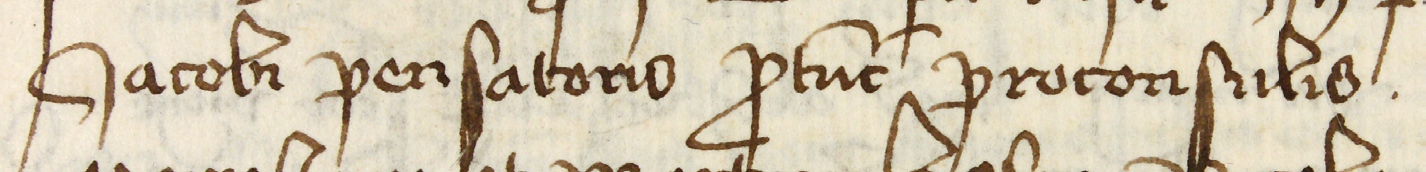 Jacobi pensatoris ꝓtūc proconsulis.